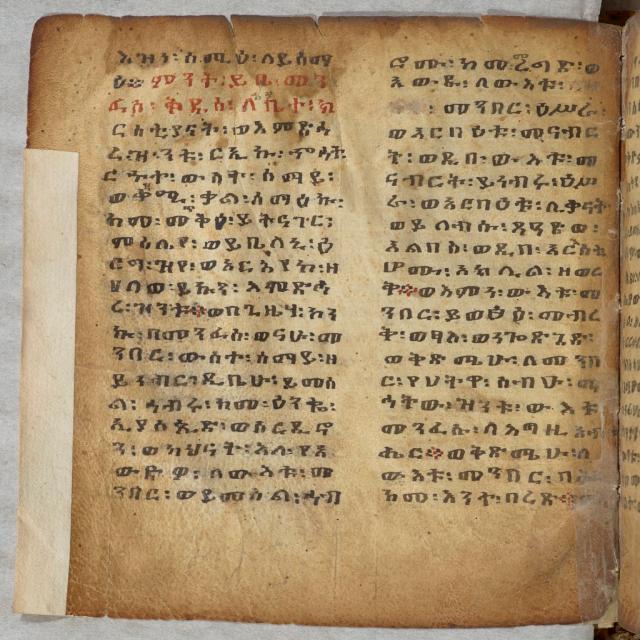 እዝነ፡ ሰሚዕ፡ ለይስማ
ዕ። ምንት፡ ይቤ፡ መን
ፈስ፡ ቅዱስ፡ ለቤተ፡ ክ
ርስቲያናት፡ ወእምድኅ
ረ፡ ዝንቱ፡ ርኢኩ፡ ኆኅት፡
ርኅተ፡ ውስተ፡ ሰማይ፡
ወቀዳሚ፡ ቃል፡ ሰማዕኩ፡
ከመ፡ መቅዕ፡ ይትናገር፡
ምስሌየ፡ ወይቤለኒ፡ ዕ
ርግ፡ ዝየ፡ ወእርእየከ፡ ዘ
ሀለወ፡ ይኩን፡ እምድኅ
ረ፡ ዝንቱ። ወበጊዜሃ፡ ኮን
ኩ፡ በመንፈስ፡ ወናሁ፡ መ
ንበር፡ ውስተ፡ ሰማይ፡ ዘ
ይነብር፡ ዲቤሁ፡ ይመስ
ል፡ ኅብሩ፡ ከመ፡ ዕንቈ፡
ኢያሰጲድ፡ ወሰርዲኖ
ን፡ ወካህናት፡ እለ፡ የዐ
ውድዎ፡ ለውእቱ፡ መ
ንበር፡ ወይመስል፡ ኅብ
ሮሙ፡ ከመ፡ ረግድ፡ ወ
አውዱ፡ ለውእቱ፡
መንበር፡ ዕሥራ፡
ወአርባዕቱ፡ መናብር
ት፡ ወዲበ፡ ውእቱ፡ መ
ናብርት፡ ይነብሩ፡ ዕሥ
ራ፡ ወአርባዕቱ፡ ሊቃናት
ወይለብሱ፡ ጸዓድወ፡
አልባሰ፡ ወዲበ፡ አርእስቲ
ሆሙ፡ አክሊል፡ ዘወረ
ቅ። ወእምነ፡ ውእቱ፡ መ
ንበር፡ ይወፅዕ፡ መብረ
ቅ፡ ወቃል፡ ወነጐድጓድ፡
ወቅድሜሁ፡ ለመንበ
ር፡ የሀትዋ፡ ሰብዑ፡ መ
ኃትው፡ ዝንቱ፡ ውእቱ
መንፈሱ፡ ለእግዚአብ
ሔር። ወቅድሜሁ፡ ለ
ውእቱ፡ መንበር፡ ባሕር
ከመ፡ እንተ፡ በረድ።